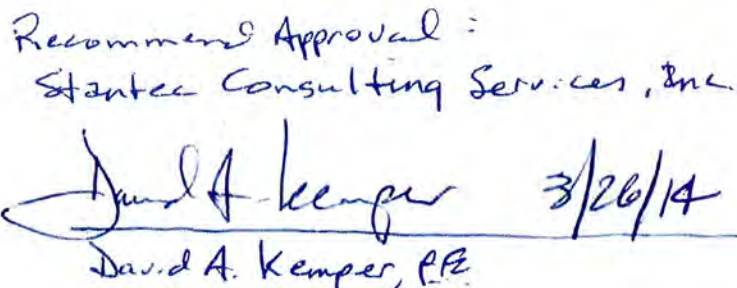 Recommend Approval :
Stantec Consulting Services, Inc.
David A. Kemper 3/26/14
David A. Kemper, P.E.